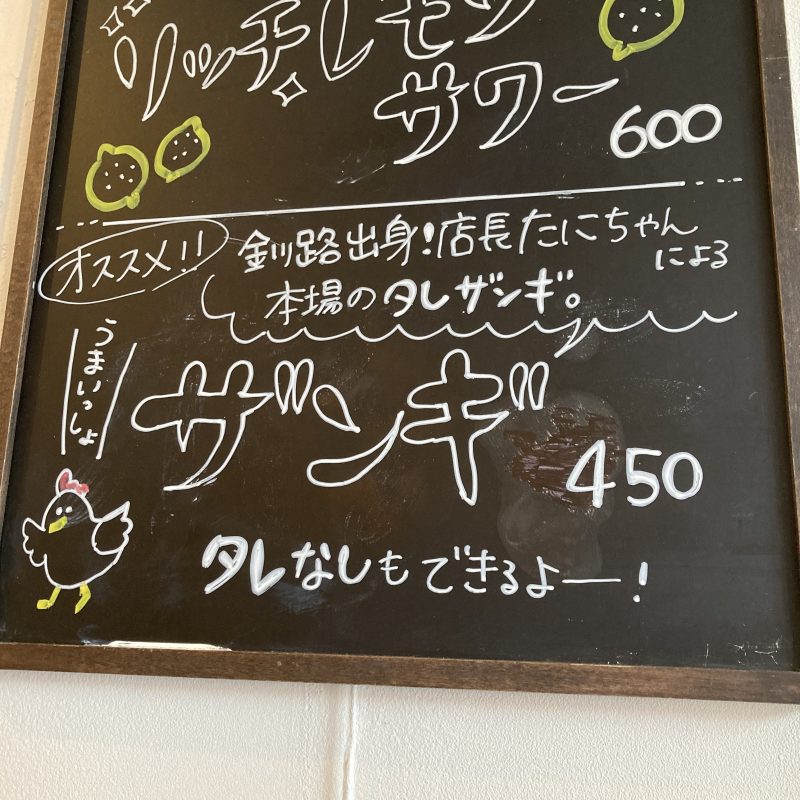 リッチレモン
サワー
600
オススメ!!
釧路出身!店長たにちゃん
による
本場のタレザンギ。
うまいっしょ
ザンギ
450
タレなしもできるよー!